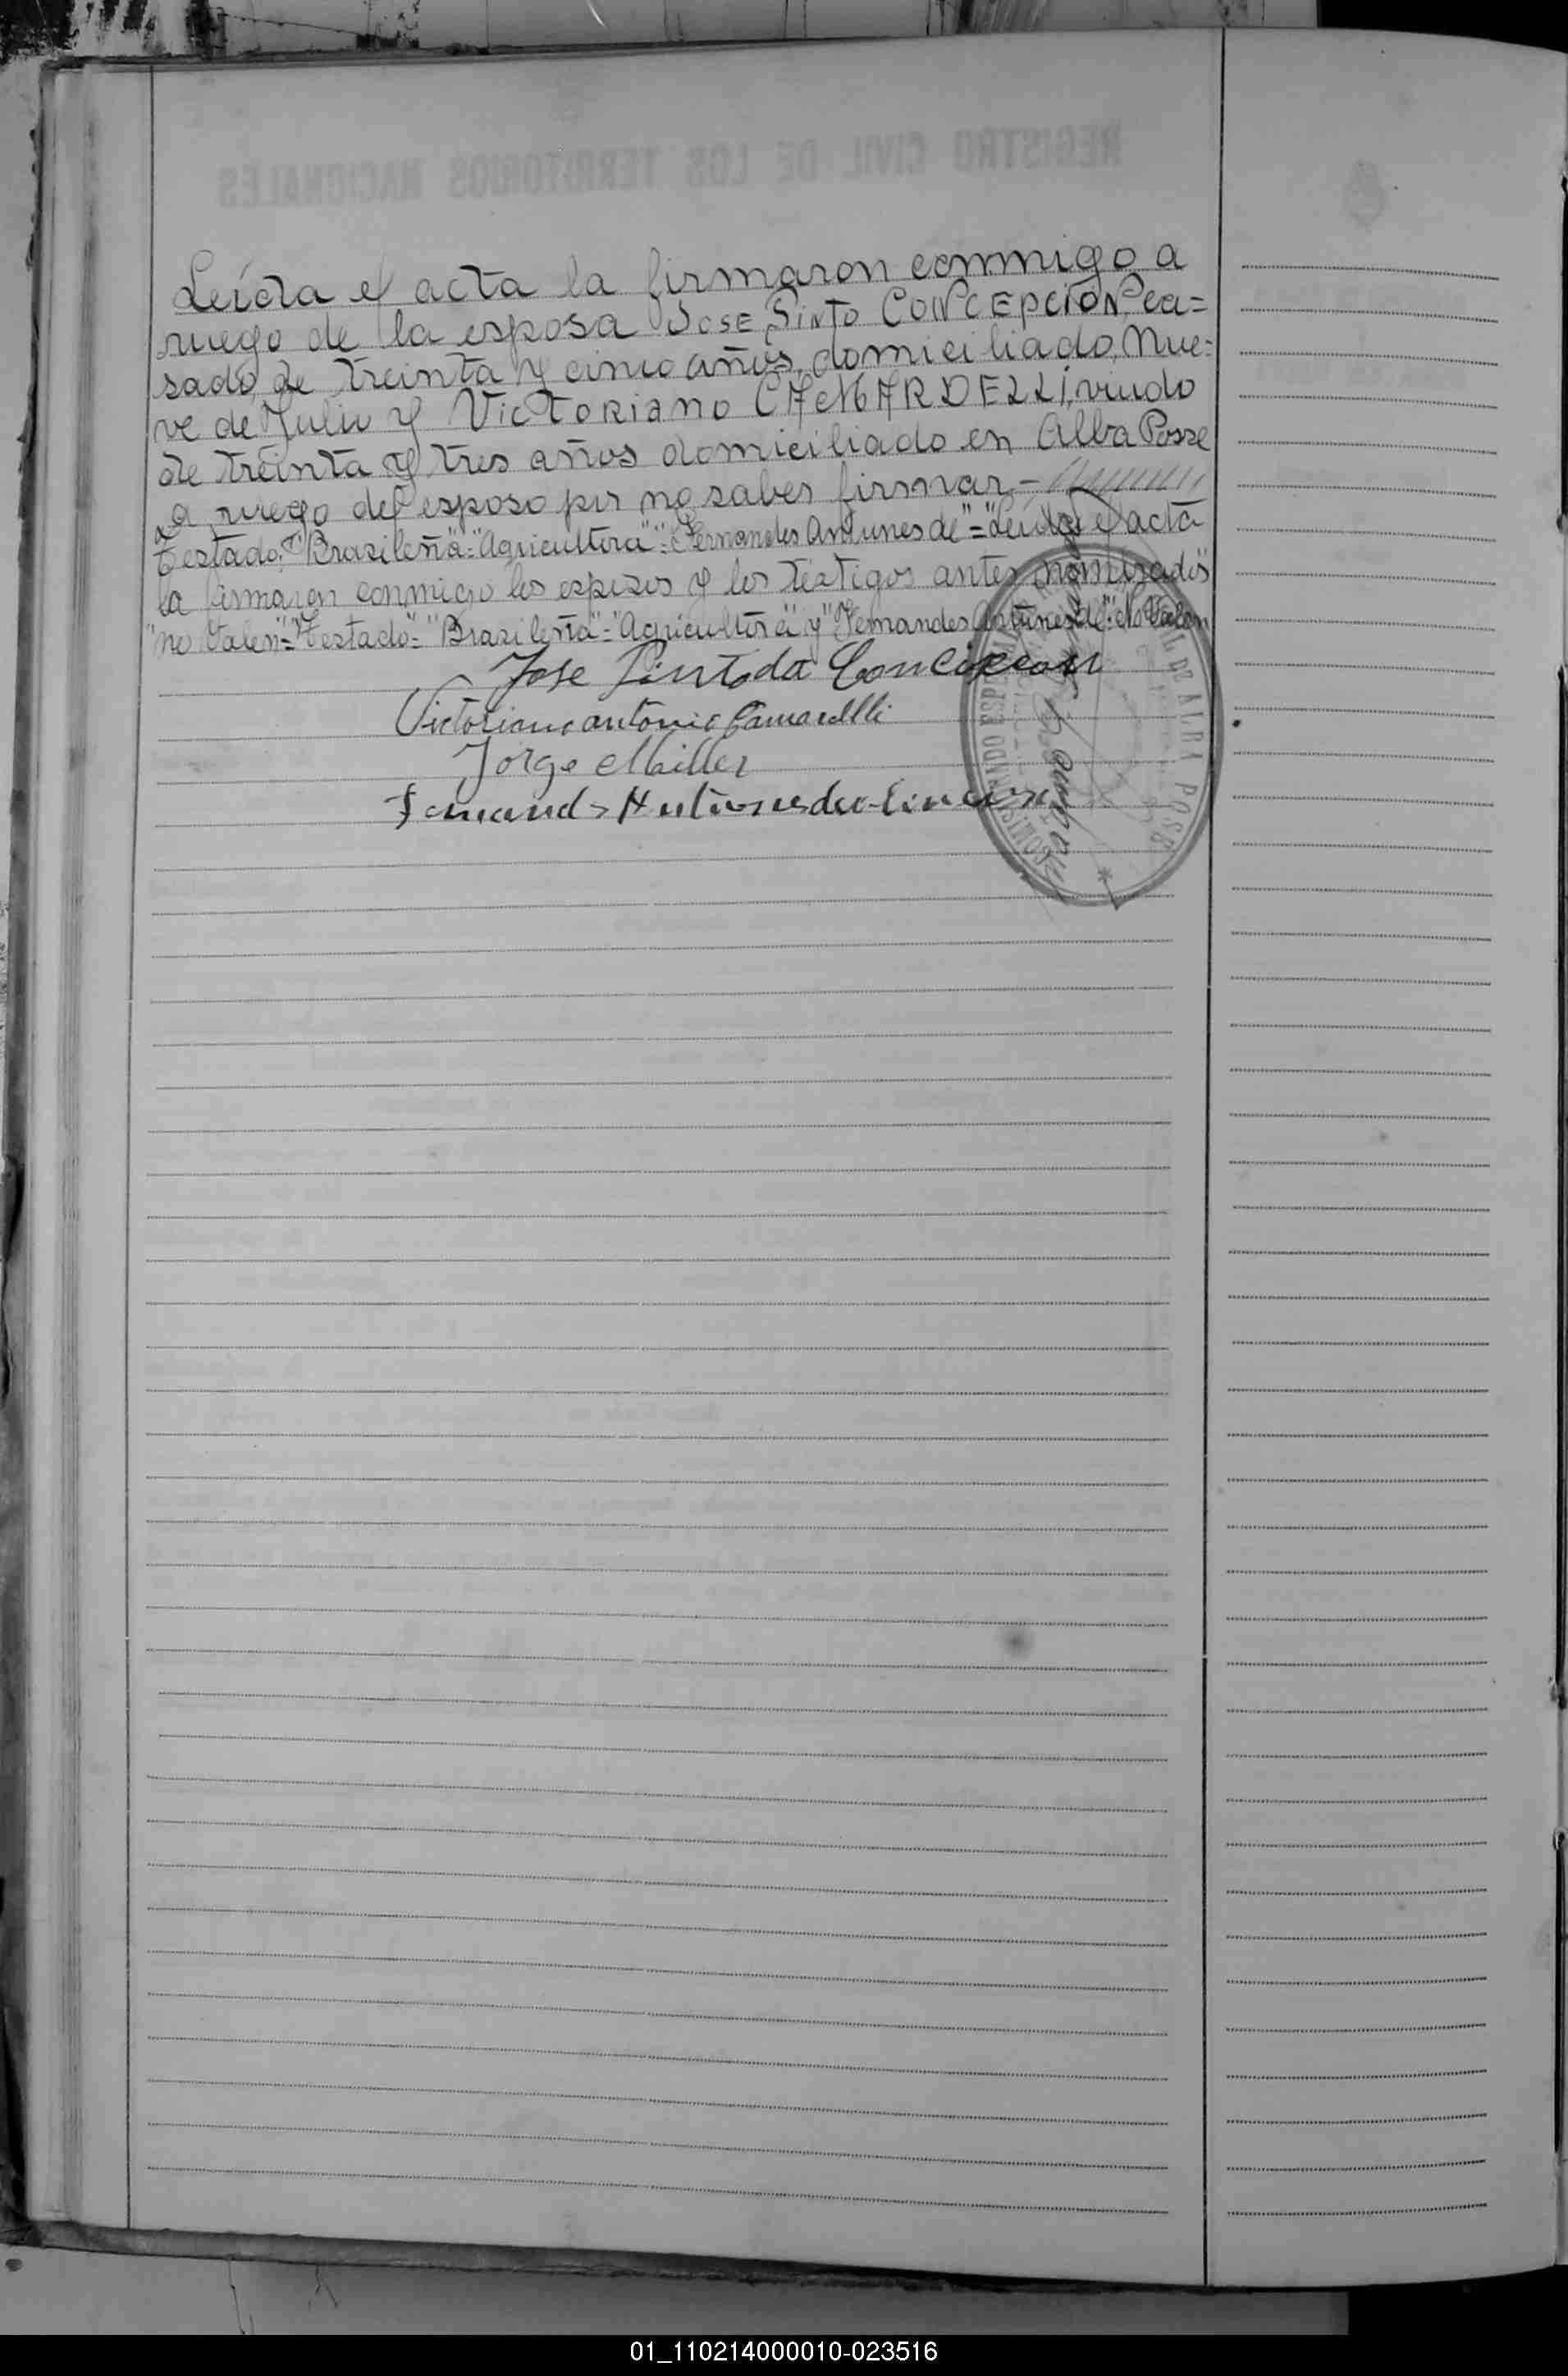 Leída el acta la firmaron conmigo a
ruego de la esposa JOSE PINTO CONCEPCION, ca=
sado, de treinta y cinco años, domiciliado, Nue=
ve de Julio y VICTORIANO CAMARDELLI, viudo
de treinta y tres años domiciliado en Alba Posse
a ruego del esposo por no saber firmar.-
Testado: "Brasileña"="Agricultora"="Fernandes Antunes de"="Leída el acta
la firmaron conmigo los esposos y los testigos antes nombrados"
"no Valen"="Testado"="Brasileña"="Agricultora" y "Fernandes Antunes de": No Valen
Jose Pinto da Conceicion
Victoriano antonio Camardelli
Jorge Miller
Antunes
ALBA POSSE
01_110214000010-023516